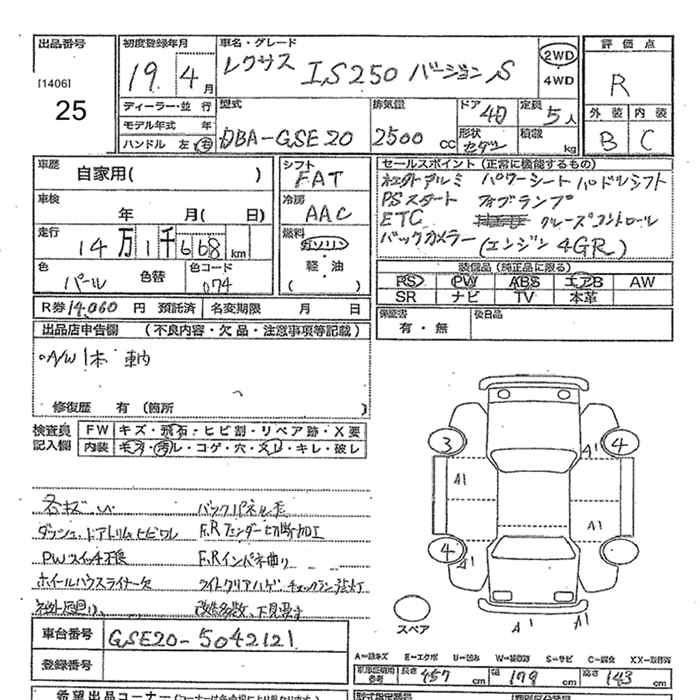 出品番号 初度登録年月 車名・グレード 評価点
[1406] 19年 4月 レクサス IS250 バージョンS 2WD 4WD R
25
ディーラー・並行 型式 排気量 ドア 定員 外装 内装
モデル年式 年 DBA-GSE20 2500cc 4D 5人 B C
ハンドル 左 右 形状 セダン 積載 kg
車歴 自家用( ) シフト FAT セールスポイント(正常に機能するもの)
社外アルミ パワーシート パドルシフト
車検 年 月( 日) 冷房 AAC PSスタート フォグランプ
ETC クルーズコントロール
走行 14万1千668km 燃料 ガソリン 軽・油 ( ) バックカメラー (エンジン4GR)
色 パール 色替 色コード 074
装備品(純正品に限る)
PS PW ABS エアB AW
SR ナビ TV 本革
R券 14,060円 預託済 名変期限 月 日
保証書 有・無 後日品
出品店申告欄 (不良内容・欠品・注意事項等記載)
○A/W 1本 車内
修復歴 有(箇所 )
検査員記入欄 FW キズ・飛石・ヒビ割・リペア跡・X要
内装 キズ・汚レ・コゲ・穴・スレ・キレ・破レ
各キズ バックパネル
ダッシュ、ドアトリムヒビワレ F,Rフェンダー切断加工
PWスイッチ不良 F,Rインパネ曲り
ホイールハウスライナー欠 ライトクリアハゲ チェックランプ点灯
改造多数、下見要す
3 4
A1 A1
A1 A1
4 A1
スペア A1 A1
車台番号 GSE20-5042121
登録番号
A=線キズ E=エクボ U=凹み W=補修跡 S=サビ C=腐食 XX=取替済
長さ 457cm 幅 179cm 高さ 143cm
希望出品コーナー